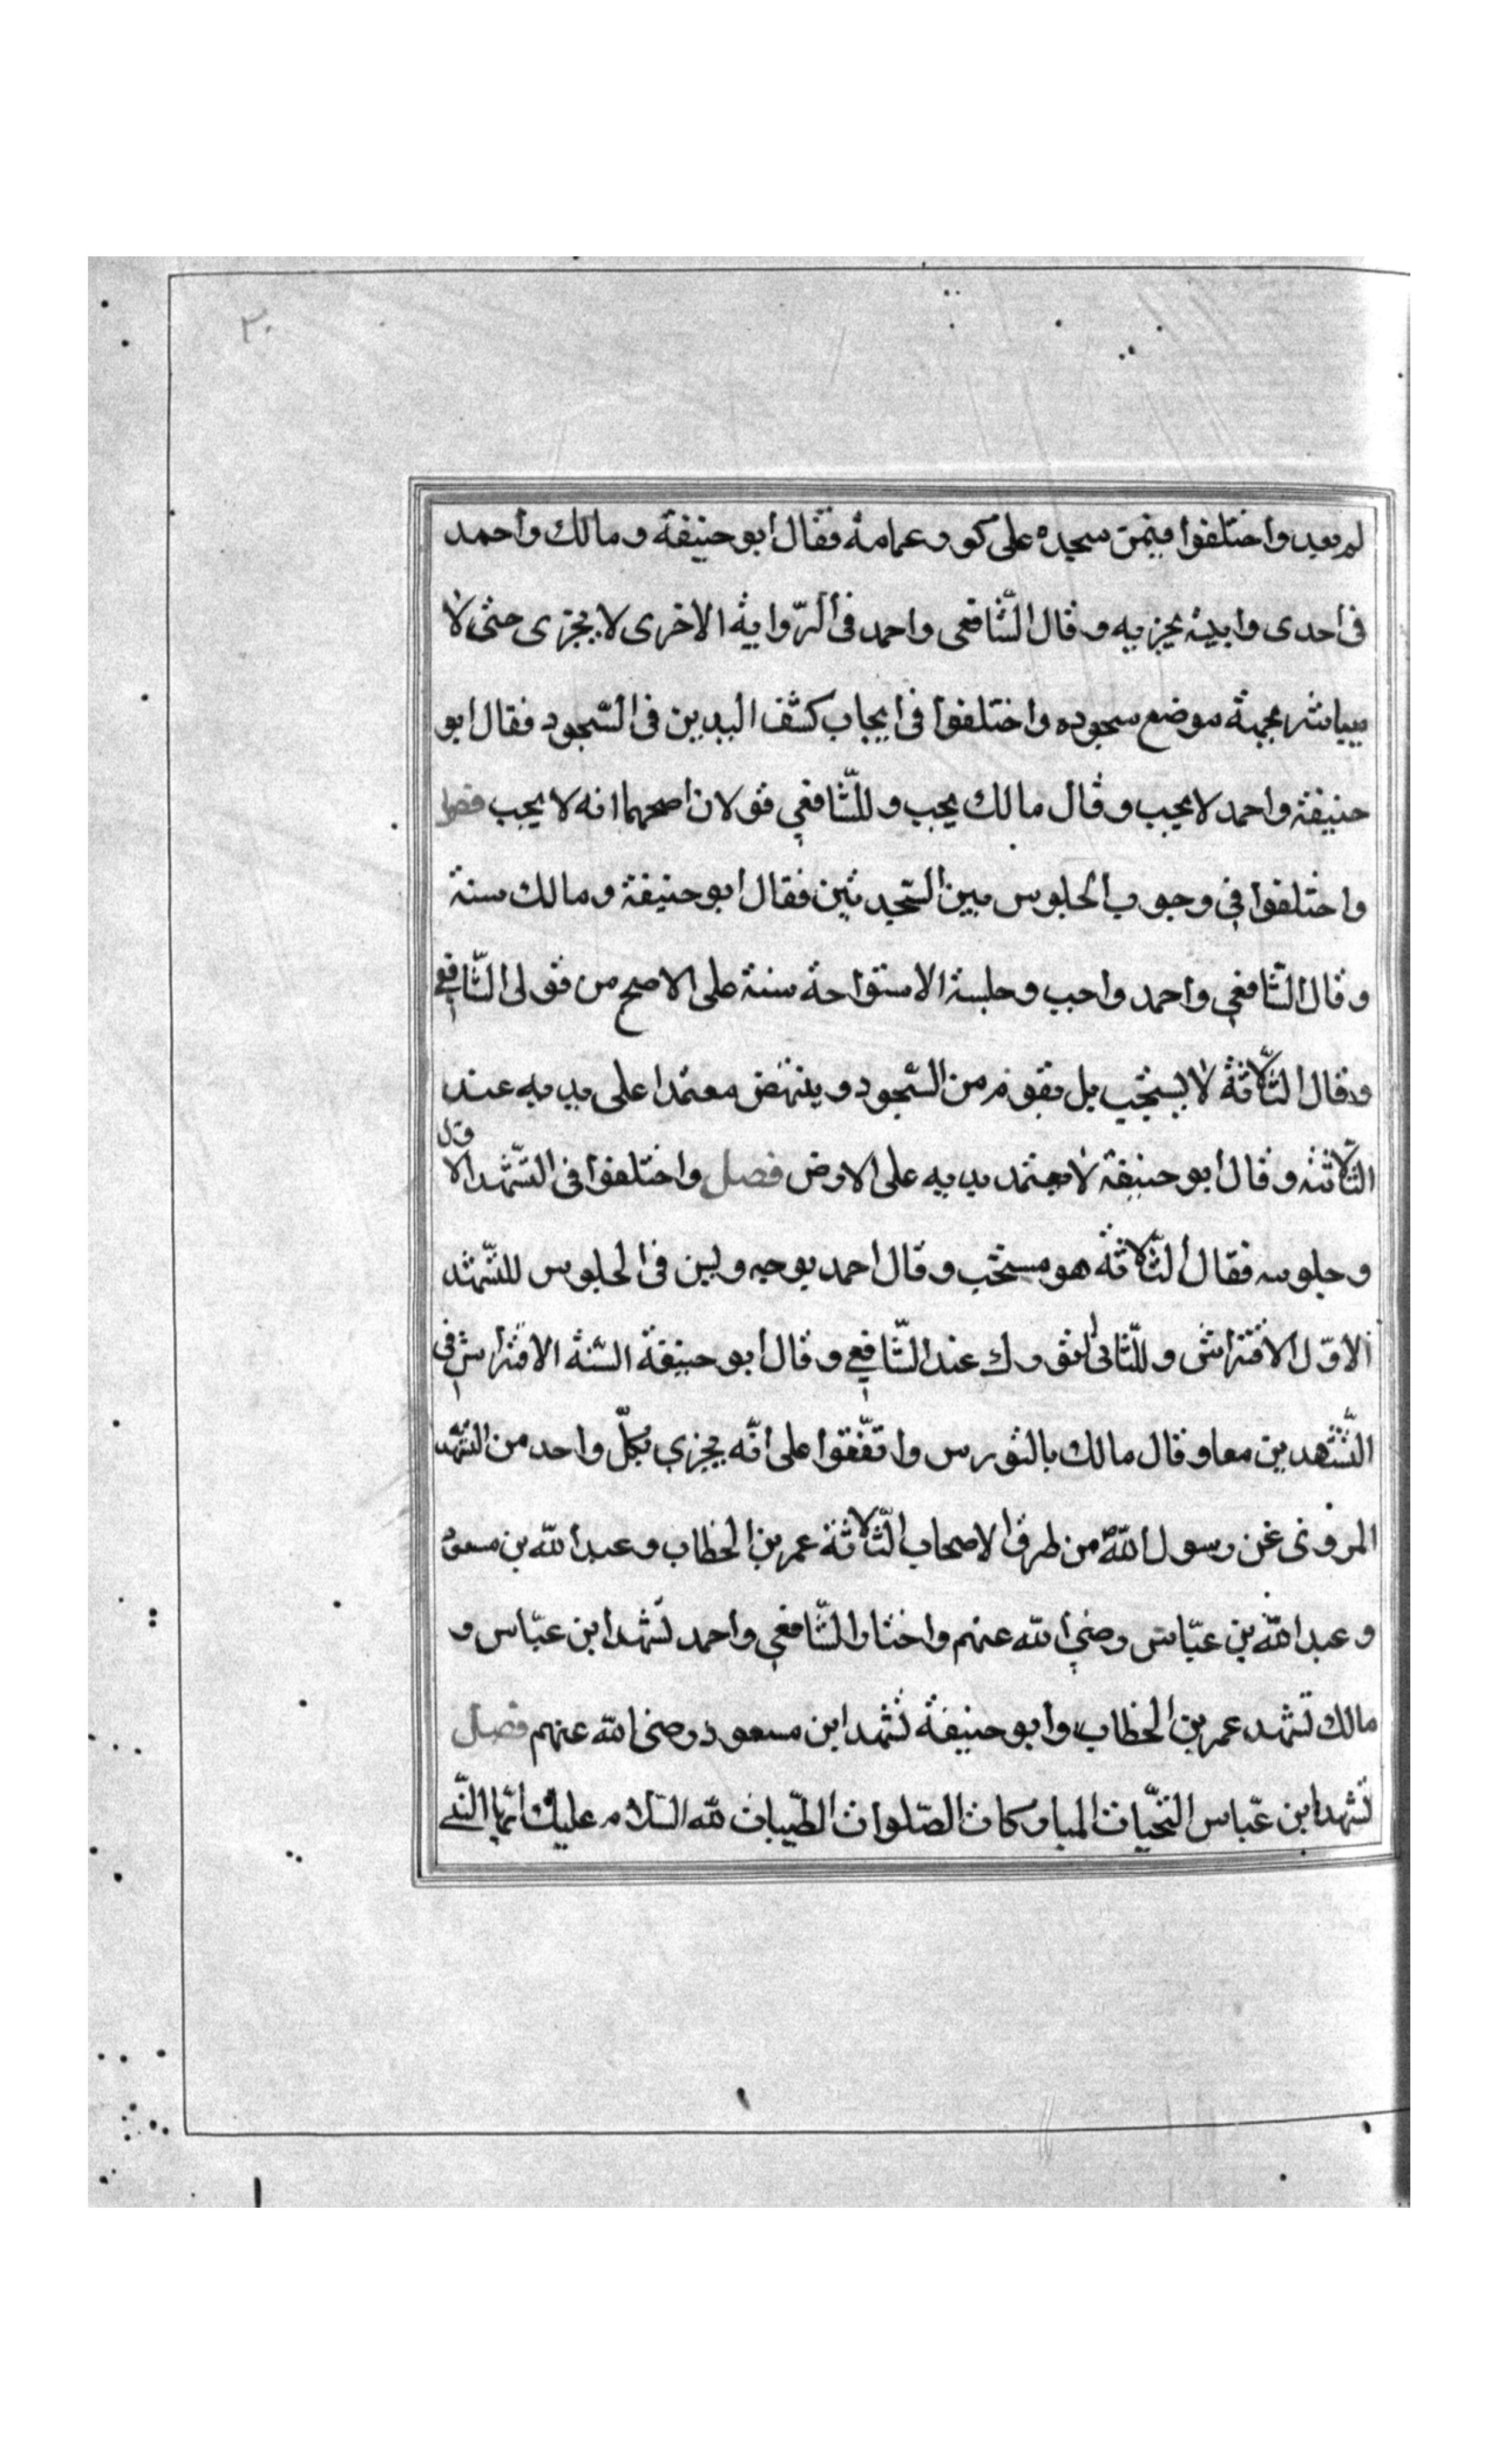 ٢٠
لم يعد واختلفوا فيمن سجده على كور عمامة فقال ابو حنيفة ومالك واحمد
فى احدى وابيته يجزيه وقال الشّافعى واحمد فى الرّواية الاخرى لا يجزى حتى لا
يباشر بجبهة موضع سجوده واختلفوا فى ايجاب كشف اليدين فى السّجود فقال ابو
حنيفة واحمد لا يجب وقال مالك يجب وللشّافعي قولان اصحهما انه لا يجب فصل
واختلفوا في وجوب الجلوس بين السّجدتين فقال ابو حنيفة ومالك سنة
وقال الشّافعي واحمد واجب وجلسة الاستراحة سنة على الاصح من قولى الشّافعي
وقال الثّلاثة لا يستحب بل يقوم من السّجود وينهض معتمدا على يديه عند
الثّلاثة وقال ابو حنيفة لا يعتمد يديه على الارض فصل واختلفوا فى التّشهد الاول
وجلوسه فقال الثّلاثة هو مستحب وقال احمد بوجبه وليس فى الجلوس للتّشهد
الاوّل الافتراش وللثّانى التورك عند الشّافعي وقال ابو حنيفة السّنة الافتراش في
التّشهدين معا وقال مالك بالتورس واتّفقوا على انّه يجزي بكلّ واحد من التّشهد
المروى عن رسول اللّه من طرق الاصحاب الثّلاثة عمر بن الخطاب وعبد اللّه بن مسعود
وعبد اللّه بن عبّاس رضي اللّه عنهم واختار الشّافعي واحمد تشهد ابن عبّاس و
مالك تشهد عمر بن الخطاب وابو حنيفة تشهد ابن مسعود رضى اللّه عنهم فصل
تشهد ابن عبّاس التحيّات المباركات الصّلوات الطّيبات للّه السّلام عليك ايّها النّبي